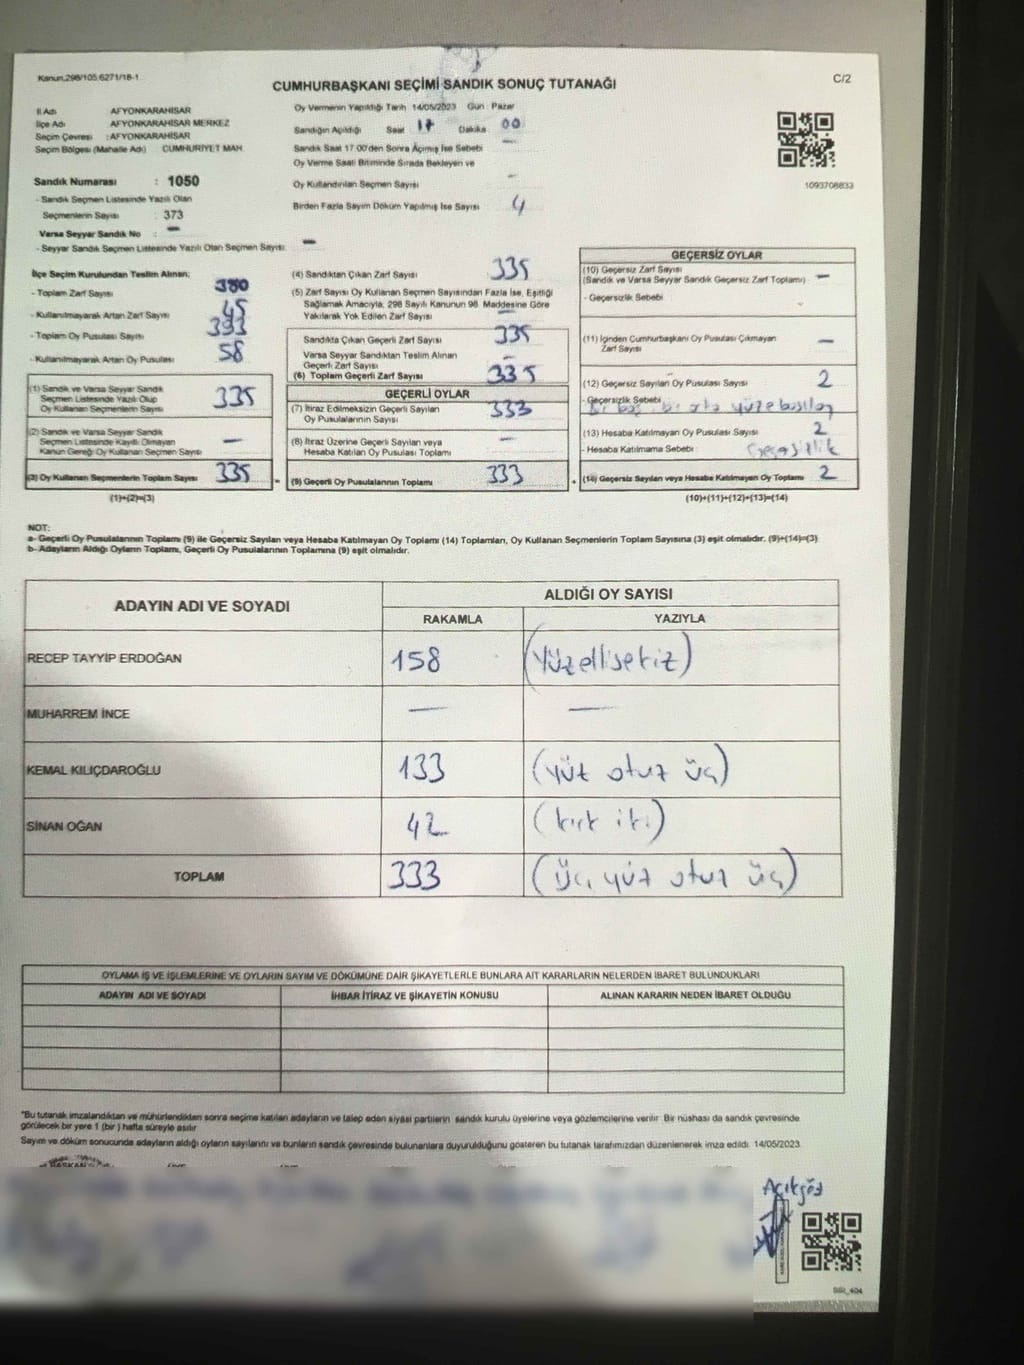 Kanun,298/105,6271/18-1
C/2
CUMHURBAŞKANI SEÇİMİ SANDIK SONUÇ TUTANAĞI
İl Adı AFYONKARAHİSAR
İlçe Adı AFYONKARAHİSAR MERKEZ
Seçim Çevresi : AFYONKARAHİSAR
Seçim Bölgesi (Mahalle Adı) CUMHURİYET MAH.
Sandık Numarası : 1050
- Sandık Seçmen Listesinde Yazılı Olan
Seçmenlerin Sayısı : 373
Varsa Seyyar Sandık No : —
- Seyyar Sandık Seçmen Listesinde Yazılı Olan Seçmen Sayısı: —
Oy Vermenin Yapıldığı Tarih 14/05/2023 Gün : Pazar
Sandığın Açıldığı Saat 17 Dakika 00
Sandık Saat 17.00'den Sonra Açılmış İse Sebebi —
Oy Verme Saati Bitiminde Sırada Bekleyen ve
Oy Kullandırılan Seçmen Sayısı —
Birden Fazla Sayım Döküm Yapılmış İse Sayısı 4
1093708833
İlçe Seçim Kurulundan Teslim Alınan;
- Toplam Zarf Sayısı 380
- Kullanılmayarak Artan Zarf Sayısı 45
- Toplam Oy Pusulası Sayısı 393
- Kullanılmayarak Artan Oy Pusulası 58
(1) Sandık ve Varsa Seyyar Sandık
Seçmen Listesinde Yazılı Olup
Oy Kullanan Seçmenlerin Sayısı 335
(2) Sandık ve Varsa Seyyar Sandık
Seçmen Listesinde Kayıtlı Olmayan
Kanun Gereği Oy Kullanan Seçmen Sayısı —
(3) Oy Kullanan Seçmenlerin Toplam Sayısı 335
(1)+(2)=(3)
(4) Sandıktan Çıkan Zarf Sayısı 335
(5) Zarf Sayısı Oy Kullanan Seçmen Sayısından Fazla İse, Eşitliği
Sağlamak Amacıyla, 298 Sayılı Kanunun 98. Maddesine Göre
Yakılarak Yok Edilen Zarf Sayısı —
Sandıkta Çıkan Geçerli Zarf Sayısı 335
Varsa Seyyar Sandıktan Teslim Alınan
Geçerli Zarf Sayısı —
(6) Toplam Geçerli Zarf Sayısı 335
GEÇERLİ OYLAR
(7) İtiraz Edilmeksizin Geçerli Sayılan
Oy Pusulalarının Sayısı 333
(8) İtiraz Üzerine Geçerli Sayılan veya
Hesaba Katılan Oy Pusulası Toplamı —
(9) Geçerli Oy Pusulalarının Toplamı 333
GEÇERSİZ OYLAR
(10) Geçersiz Zarf Sayısı
(Sandık ve Varsa Seyyar Sandık Geçersiz Zarf Toplamı) —
- Geçersizlik Sebebi
(11) İçinden Cumhurbaşkanı Oy Pusulası Çıkmayan
Zarf Sayısı —
(12) Geçersiz Sayılan Oy Pusulası Sayısı 2
- Geçersizlik Sebebi
Bir boş. bir orta yüze basılan
(13) Hesaba Katılmayan Oy Pusulası Sayısı 2
- Hesaba Katılmama Sebebi : Geçersizlik
(14) Geçersiz Sayılan veya Hesaba Katılmayan Oy Toplamı 2
(10)+(11)+(12)+(13)=(14)
NOT:
a- Geçerli Oy Pusulalarının Toplamı (9) ile Geçersiz Sayılan veya Hesaba Katılmayan Oy Toplamı (14) Toplamları, Oy Kullanan Seçmenlerin Toplam Sayısına (3) eşit olmalıdır. (9)+(14)=(3)
b- Adayların Aldığı Oyların Toplamı, Geçerli Oy Pusulalarının Toplamına (9) eşit olmalıdır.
ADAYIN ADI VE SOYADI ALDIĞI OY SAYISI
RAKAMLA YAZIYLA
RECEP TAYYİP ERDOĞAN 158 (yüzellisekiz)
MUHARREM İNCE — —
KEMAL KILIÇDAROĞLU 133 (yüz otuz üç)
SİNAN OĞAN 42 (kırk iki)
TOPLAM 333 (üç yüz otuz üç)
OYLAMA İŞ VE İŞLEMLERİNE VE OYLARIN SAYIM VE DÖKÜMÜNE DAİR ŞİKAYETLERLE BUNLARA AİT KARARLARIN NELERDEN İBARET BULUNDUKLARI
ADAYIN ADI VE SOYADI İHBAR İTİRAZ VE ŞİKAYETİN KONUSU ALINAN KARARIN NEDEN İBARET OLDUĞU
*Bu tutanak imzalandıktan ve mühürlendikten sonra seçime katılan adayların ve talep eden siyasi partilerin sandık kurulu üyelerine veya gözlemcilerine verilir. Bir nüshası da sandık çevresinde
görülecek bir yere 1 (bir) hafta süreyle asılır
Sayım ve döküm sonucunda adayların aldığı oyların sayılarını ve bunların sandık çevresinde bulunanlara duyurulduğunu gösteren bu tutanak tarafımızdan düzenlenerek imza edildi. 14/05/2023
BAŞKAN
Açıkgöz